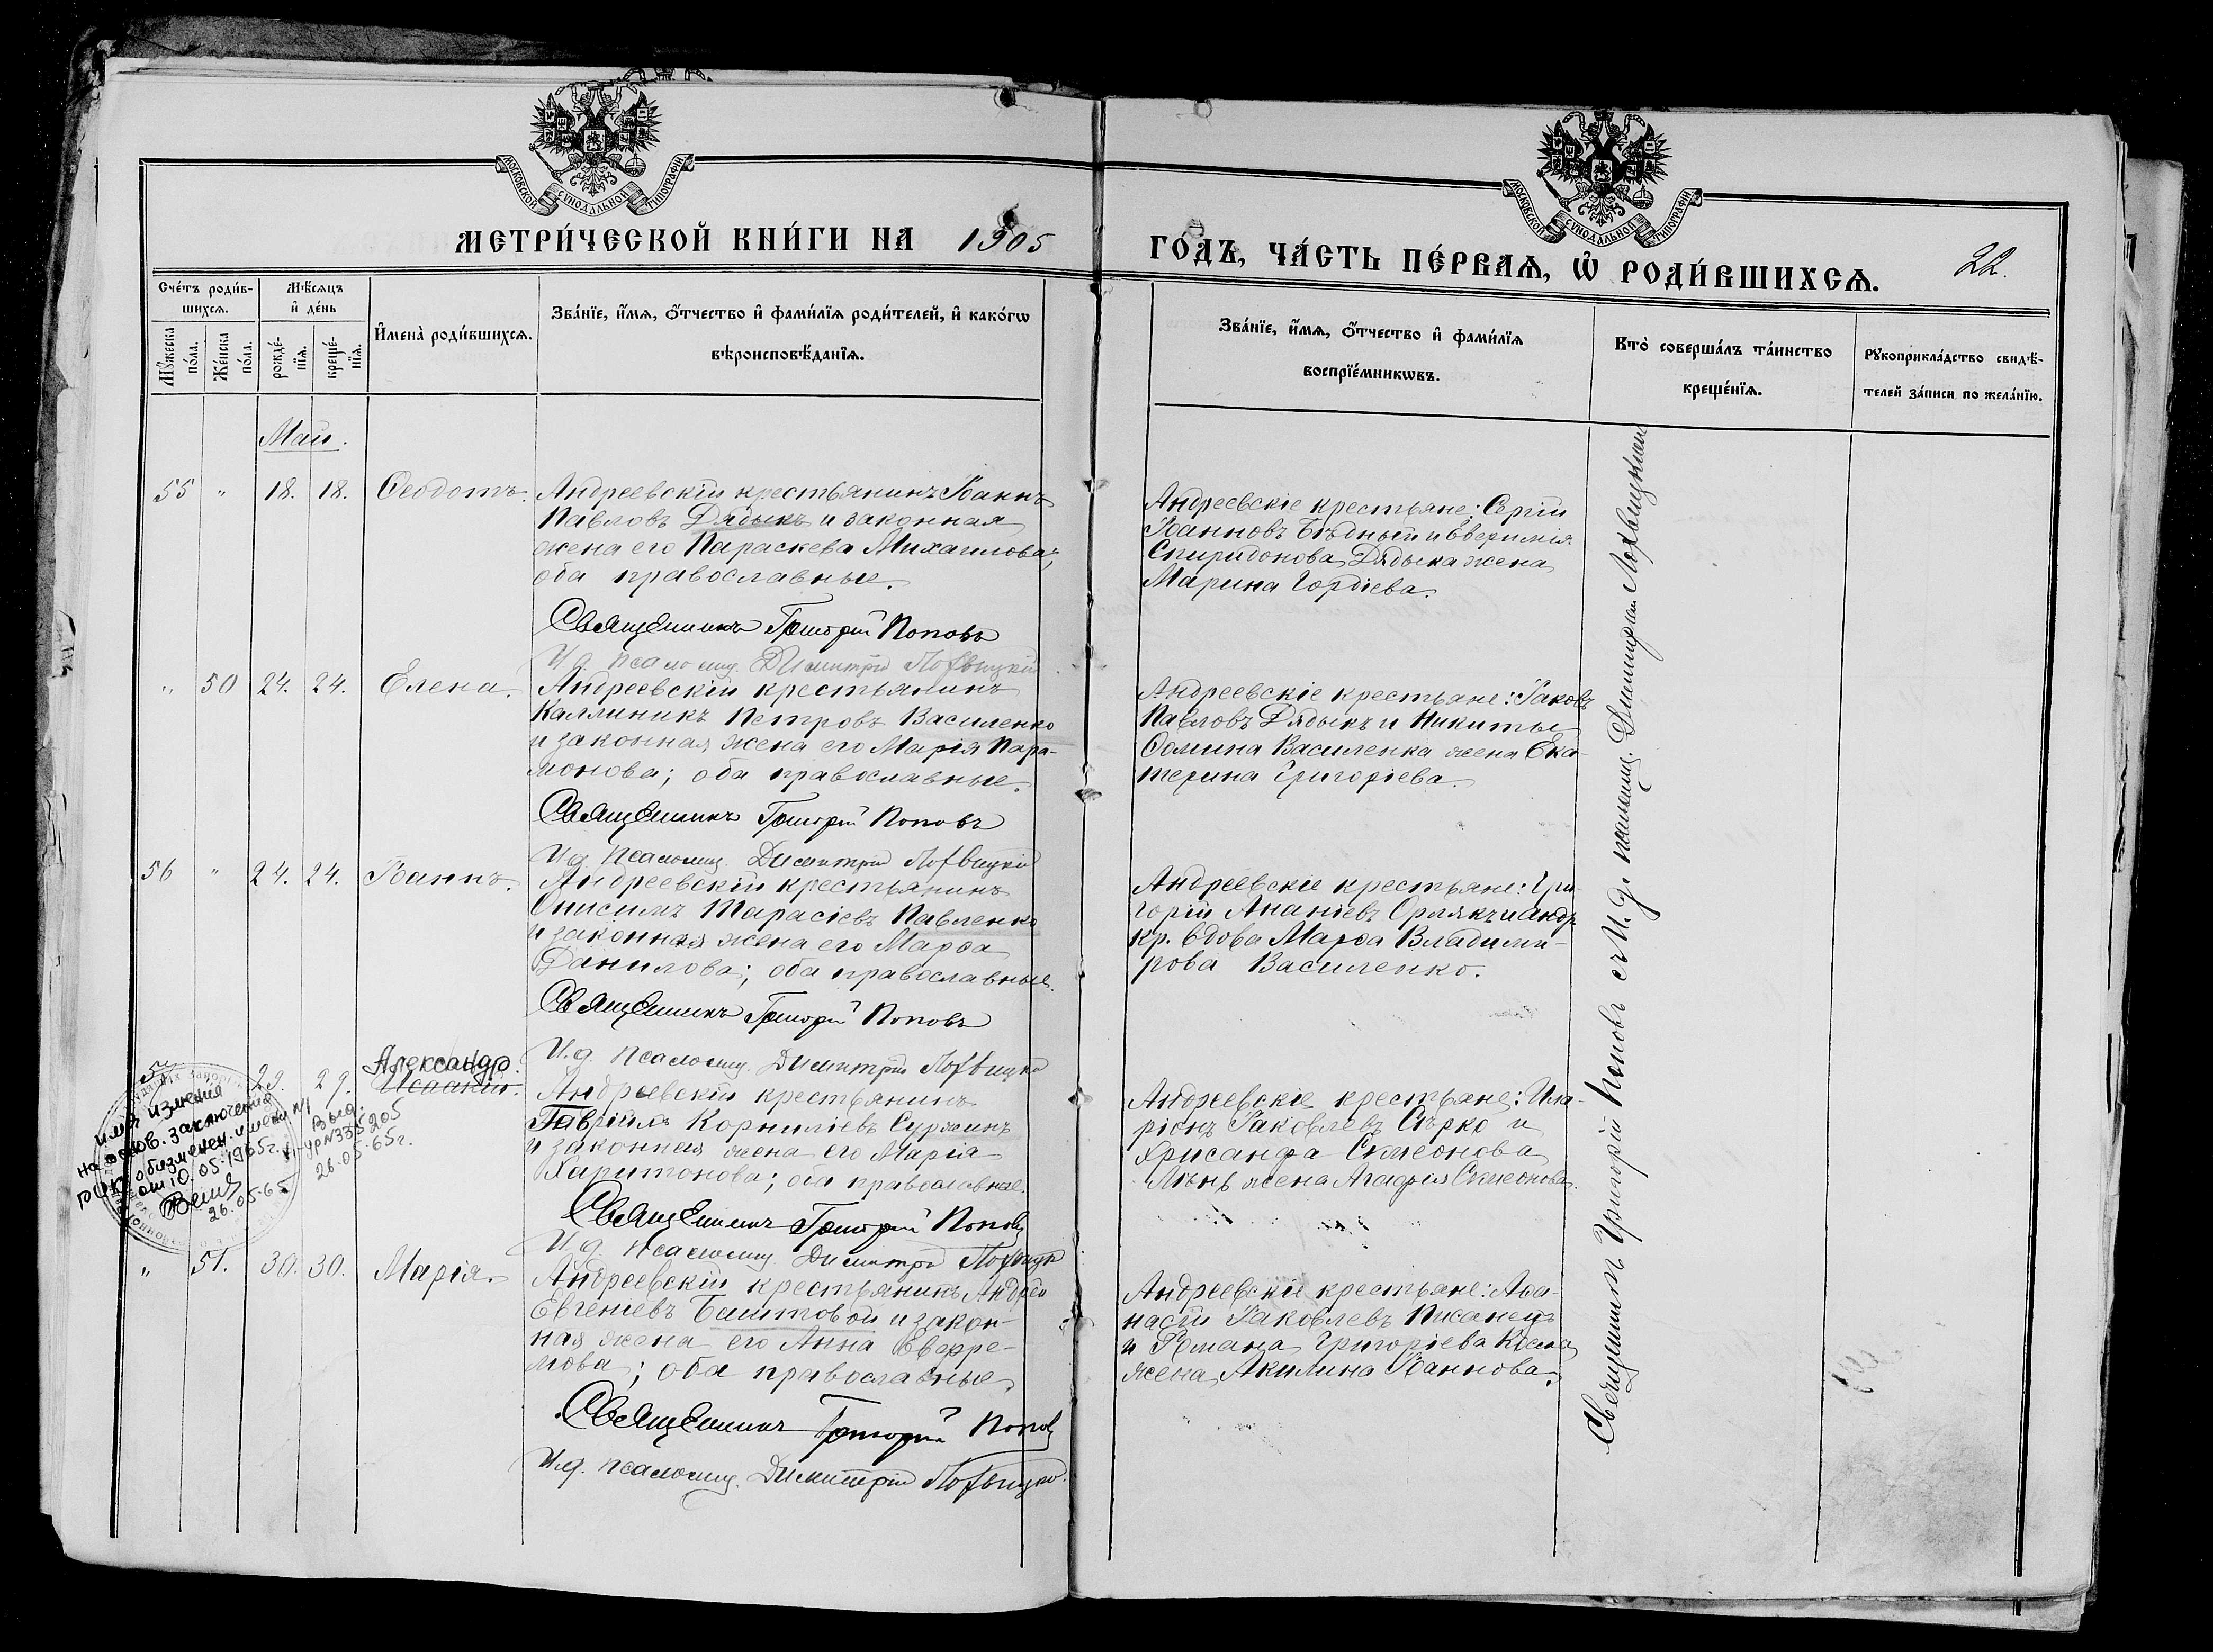 МОСКОВСКОЙ СУНОДАЛЬНОЙ ТИПОГРАФІИ
МОСКОВСКОЙ СУНОДАЛЬНОЙ ТИПОГРАФІИ
МЕТРИ́ЧЕСКОЙ КНИ́ГИ НА 1905
ГО́ДЪ, ЧА́СТЬ ПЕ́РВАѦ, Ѡ҆ РОДИ́ВШИХСѦ.
22.
Сче́тъ роди́в-
шихсѧ.
Мꙋ́жеска
по́ла.
Же́нска
по́ла.
Мѣ́сѧцъ
и҆ де́нь
рожде́-
нїѧ.
креще́-
нїѧ.
И҆мена̀ роди́вшихсѧ.
Зва́нїе, и҆́мѧ, ѻ҆́тчество и҆ фами́лїѧ роди́телей, и҆ како́гѡ
вѣроисповѣ́данїѧ.
Зва́нїе, и҆́мѧ, ѻ҆́тчество и҆ фами́лїѧ
воспрїе́мникѡвъ.
Кто̀ соверша́лъ та́инство
креще́нїѧ.
Рꙋкоприкла́дство свидѣ́-
телей за́писи по жела́нїю.
Май.
55 " 18. 18. Ѳеодотъ.
Андреевскій крестьянинъ Іоаннъ
Павловъ Дядыкъ и законная
жена его Параскева Михаилова;
оба православные.
Священникъ Григорій Поповъ
И.д. псаломщ. Димитрій Лохвицкій
Андреевскіе крестьяне: Сергій
Іоанновъ Бѣдный и Евѳимія
Спиридонова Дядыка жена
Марина Гордіева.
" 50 24. 24. Елена.
Андреевскій крестьянинъ
Каллиникъ Петровъ Василенко
и законная жена его Марія Пара-
монова; оба православные.
Священникъ Григорій Поповъ
И.д. псаломщ. Димитрій Лохвицкій
Андреевскіе крестьяне: Іаковъ
Павловъ Дядыкъ и Никиты
Ѳомина Василенка жена Ека-
терина Григоріева.
56 " 24. 24. Іоаннъ.
Андреевскій крестьянинъ
Онисимъ Тарасіевъ Павленко
и законная жена его Марѳа
Данилова; оба православные.
Священникъ Григорій Поповъ
И.д. псаломщ. Димитрій Лохвицкій
Андреевскіе крестьяне: Гри-
горій Ананіевъ Орлякъ и Андр.
кр. вдова Марѳа Владими-
рова Василенко.
Александр.
57. " 29. 29. Исаакій.
Андреевскій крестьянинъ
Гавріилъ Корниліевъ Суржинъ
и законная жена его Марія
Харитонова; оба православные.
Священникъ Григорій Поповъ
И.д. псаломщ. Димитрій Лохвицк
Андреевскіе крестьяне: Ила-
ріонъ Іаковлевъ Сѣрко и
Хрисанфа Симеонова
жена Агафія Симеонова.
имя изменен
на основ. заключения
об изменен. имени №1
от 10.05.1965г.
26.05.65
26.05.65г.
" 51. 30. 30. Марія.
Андреевскій крестьянинъ Андрей
Евгеніевъ Баштовой и закон-
ная жена его Анна Евфре-
мова; оба православные.
Священникъ Григорій Поповъ
И.д. псаломщ. Димитрій Лохвицкій.
Андреевскіе крестьяне: Аѳа-
насій Іаковлевъ Писанецъ
и Романа Григоріева
жена Акилина Іоаннова.
Священникъ Григорій Поповъ съ И. д. псаломщ. Димитріем Лохвицкимъ